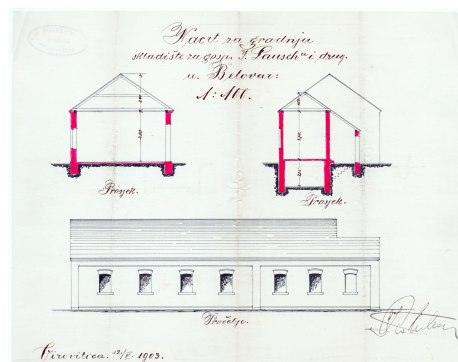 Nacrt za gradnju
skladište za gosp. T. Lausch i drug.
u Belovar:
1:100.
Prosjek.
Prosjek.
Pročelje.
Virovitica. 1903.